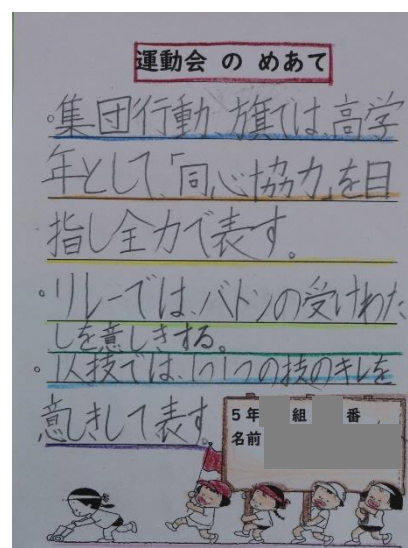 運動会 の めあて
。集団行動、旗では、高学
年として、「同心協力」を目
指し全力で表す。
。リレーでは、バトンの受けわた
しを意しきする。
。1人技では、1つ1つの技のキレを
意しきして表す。
5年 組 番
名前